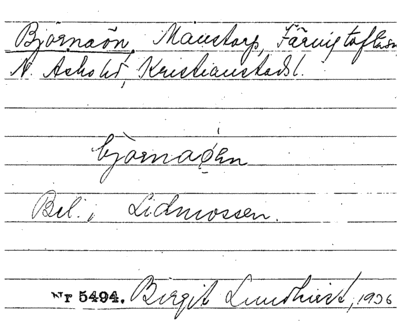 Björnaön, Månstorp, Färingtofta sn
N. Åsbo hd, Kristianstads l.
björnaǫ́en
Bel., Lidmossen.
Nr 5494. Birgit Lundkvist, 1936